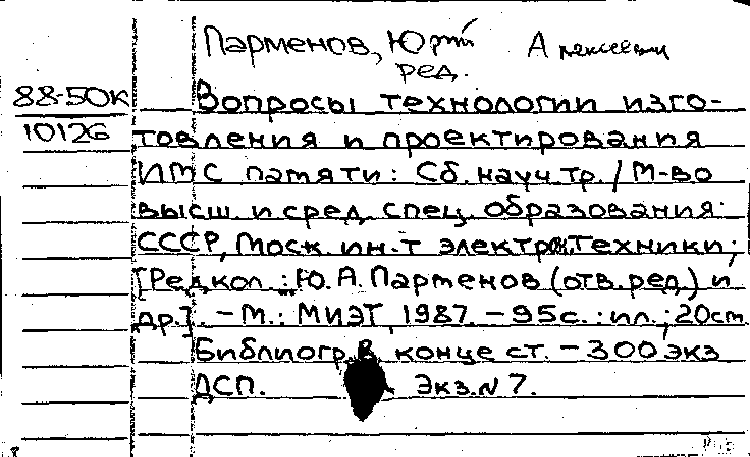 Парменов, Юрий Алексеевич
ред.
88-50К Вопросы технологии изго-
10126 товления и проектирования
ИМС памяти: Сб. науч. тр. / М-во
высш. и сред. спец. образования
СССР, Моск. ин-т электрон. техники;
[Редкол.: Ю. А. Парменов (отв. ред.) и
др.]. - М.: МИЭТ, 1987. - 95 с. : ил.; 20 см.
Библиогр. в конце ст. - 300 экз
ДСП. Экз. N 7.